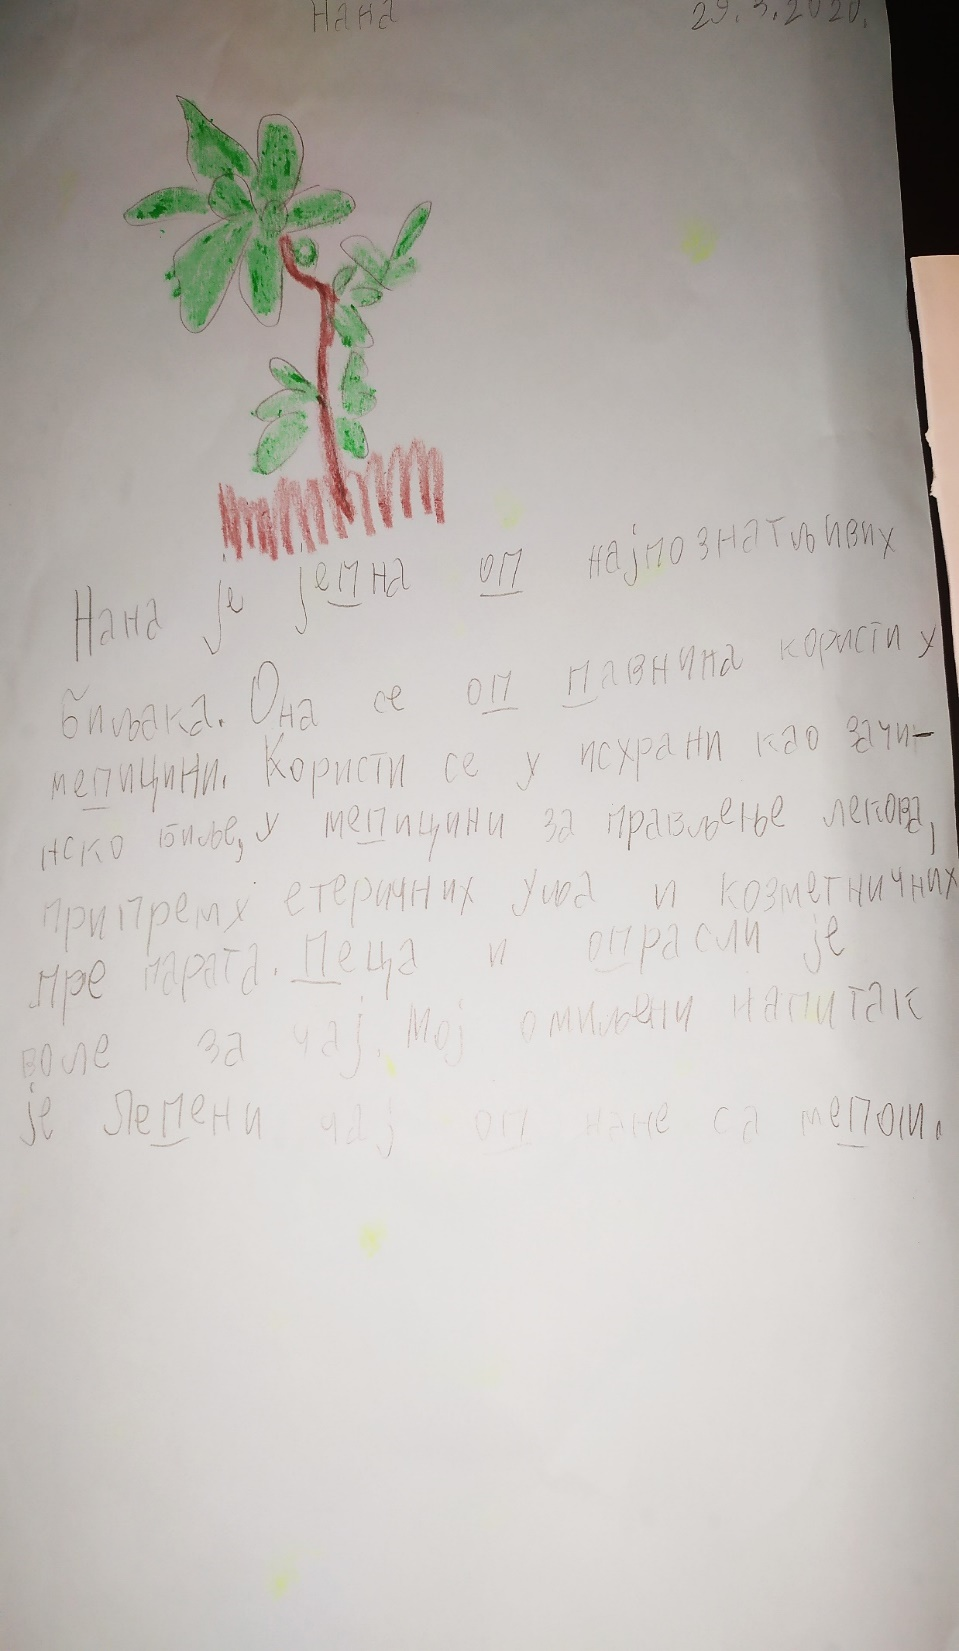 Нана 29.3.2020.
Нана је једна од најпознатљивих
биљака. Она се од давнина користи у
медицини. Користи се у исхрани као зачи-
нско биље, у медицини за прављење лекова,
припрему етеричних уља и козметничних
препарата. Деца и одрасли је
воле за чај. Мој омиљени напитак
је Ледени чај од нане са медом.